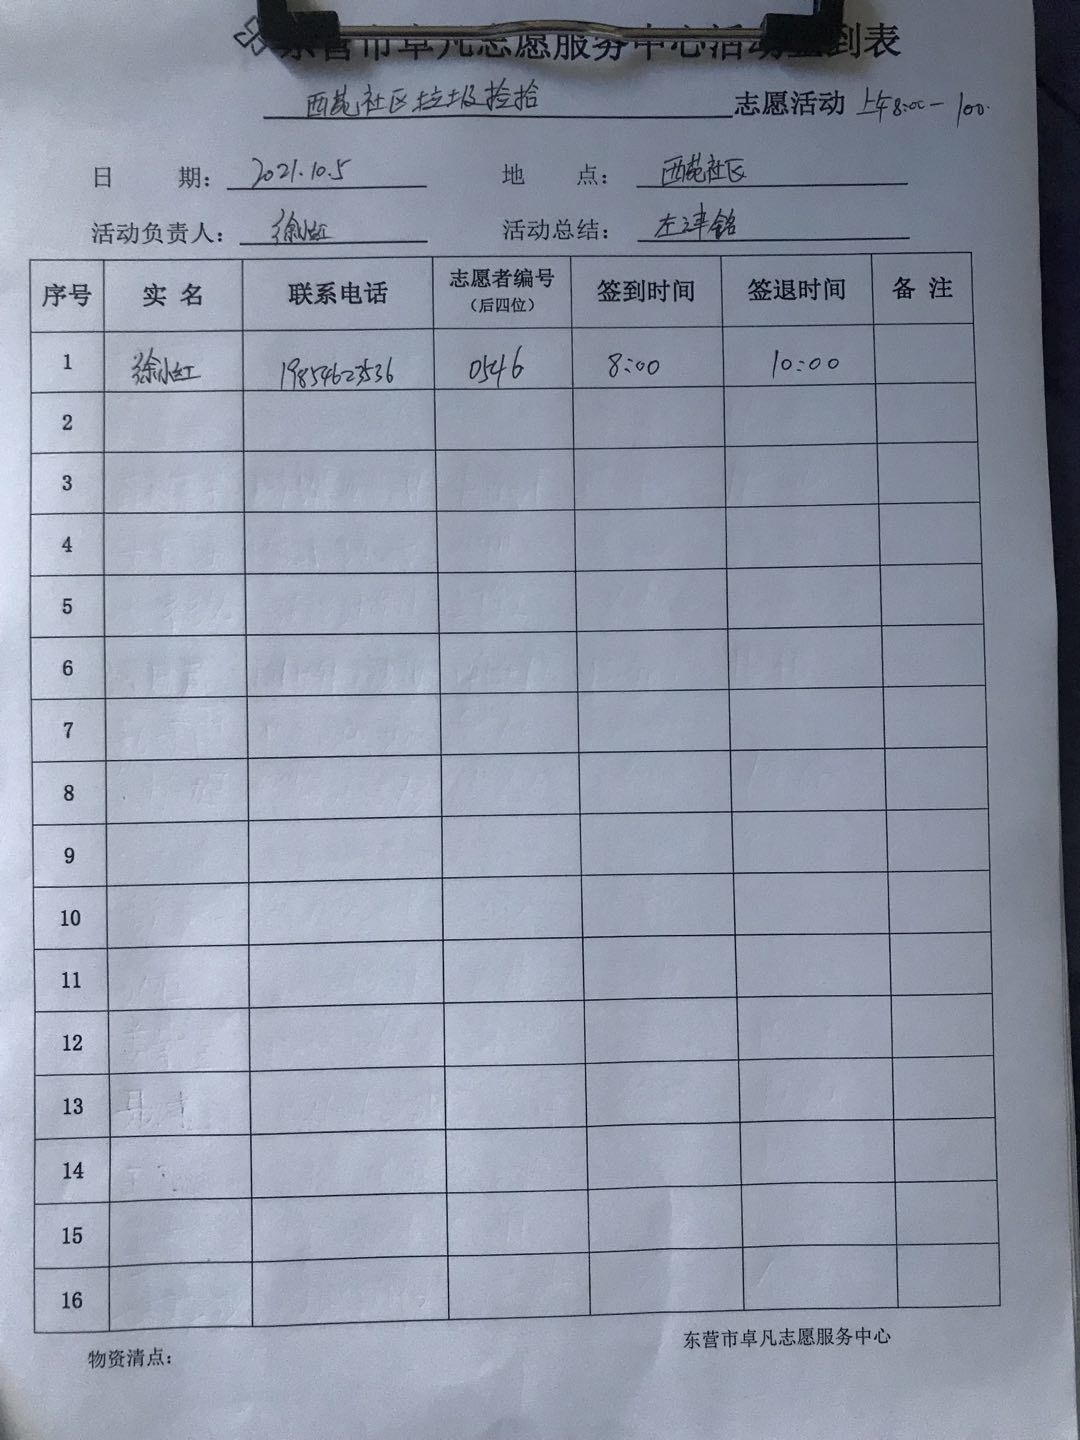 东营市卓凡志愿服务中心活动签到表
西苑社区垃圾捡拾 志愿活动 上午8:00-100.
日 期: 2021.10.5 地 点: 西苑社区
活动负责人: 徐小红 活动总结: 左津铭
序号 实 名 联系电话 志愿者编号(后四位) 签到时间 签退时间 备 注
1 徐小红 19854623536 0546 8:00 10:00
2
3
4
5
6
7
8
9
10
11
12
13
14
15
16
物资清点: 东营市卓凡志愿服务中心